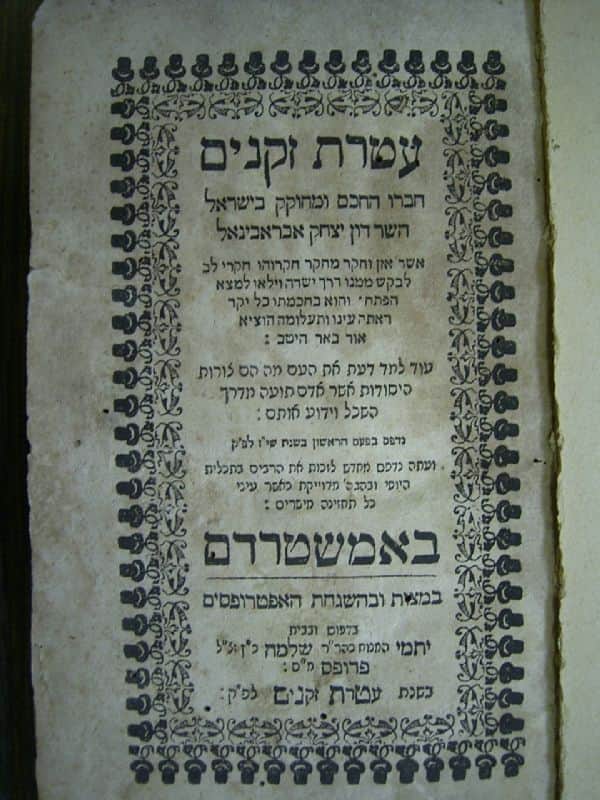 עטרת זקנים
חברו החכם ומחוקק בישראל
השר דון יצחק אבראבינאל
אשר אזן וחקר מחקר חקרוהו חקרי לב
לבקש ממנו דרך ישרה וילאו למצא
הפתח׳ והוא בחכמתו כל יקר
ראתה עינו ותעלומה הוציא
אור באר היטב :
עוד למד דעת את העם מה הם צורות
היסודות אשר אדם תועה מדרך
השכל וידוע אותם :
נדפס בפעם הראשון בשנת שי״ז לפ״ק
ועתה נדפס מחדש לזכות את הרבים בתכלית
היופי ובהגה׳ מדוייקת כאשר עיני
כל תחזינה מישרים :
באמשטרדם
במצות ובהשגחת האפטרופסים
בדפוס ובבית
יתמי המנוח כהר״ר שלמה כ״ץ זצ״ל
פרופס מ״ס :
בשנת עטרת זקנים לפ״ק :